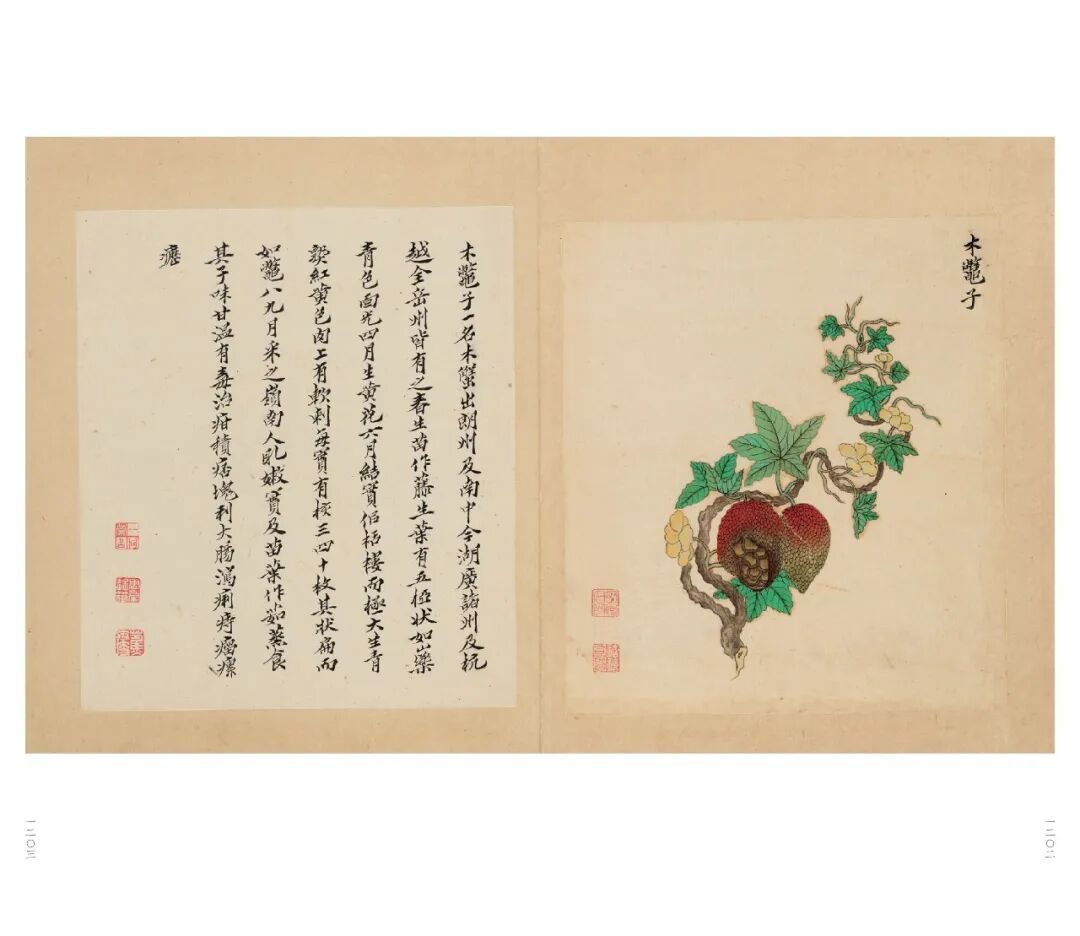 木鼈子
木鼈子一名木蟹出朗州及南中今湖廣諸州及杭
越全岳州皆有之春生苗作藤生葉有五椏狀如山藥
青色面光四月生黃花六月結實侣栝樓而極大生青
熟紅黃色肉上有軟刺每實有核三四十枚其狀扁而
如鼈八九月采之嶺南人取嫩實及苗葉作茹蒸食
其子味甘温有毒治疳積痞塊利大腸瀉痢痔瘤瘰
癧